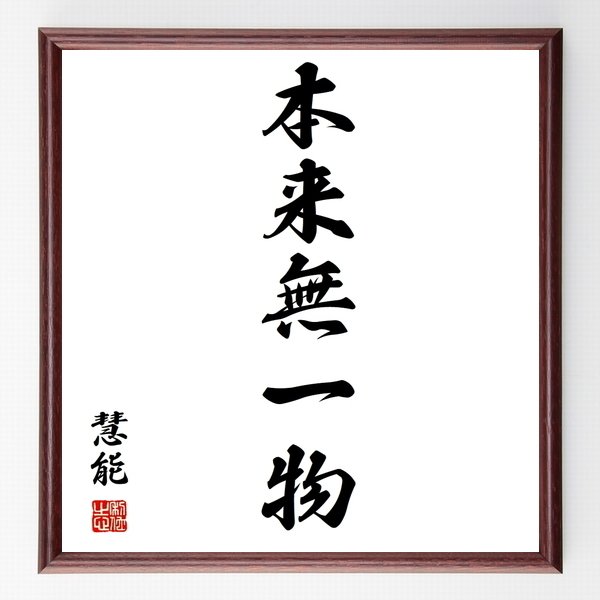 本来無一物
慧能